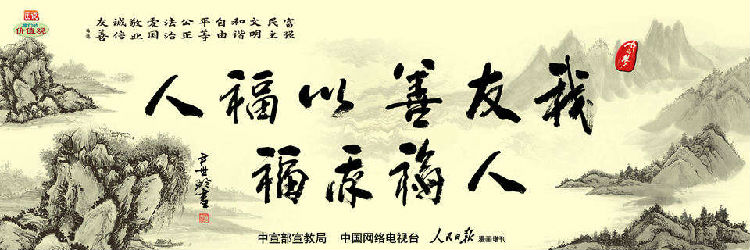 价值观
富强
民主
文明
和谐
自由
平等
公正
法治
爱国
敬业
诚信
友善
我友善以福人
人福亦福
中宣部宣教局 中国网络电视台 人民日报 漫画增刊